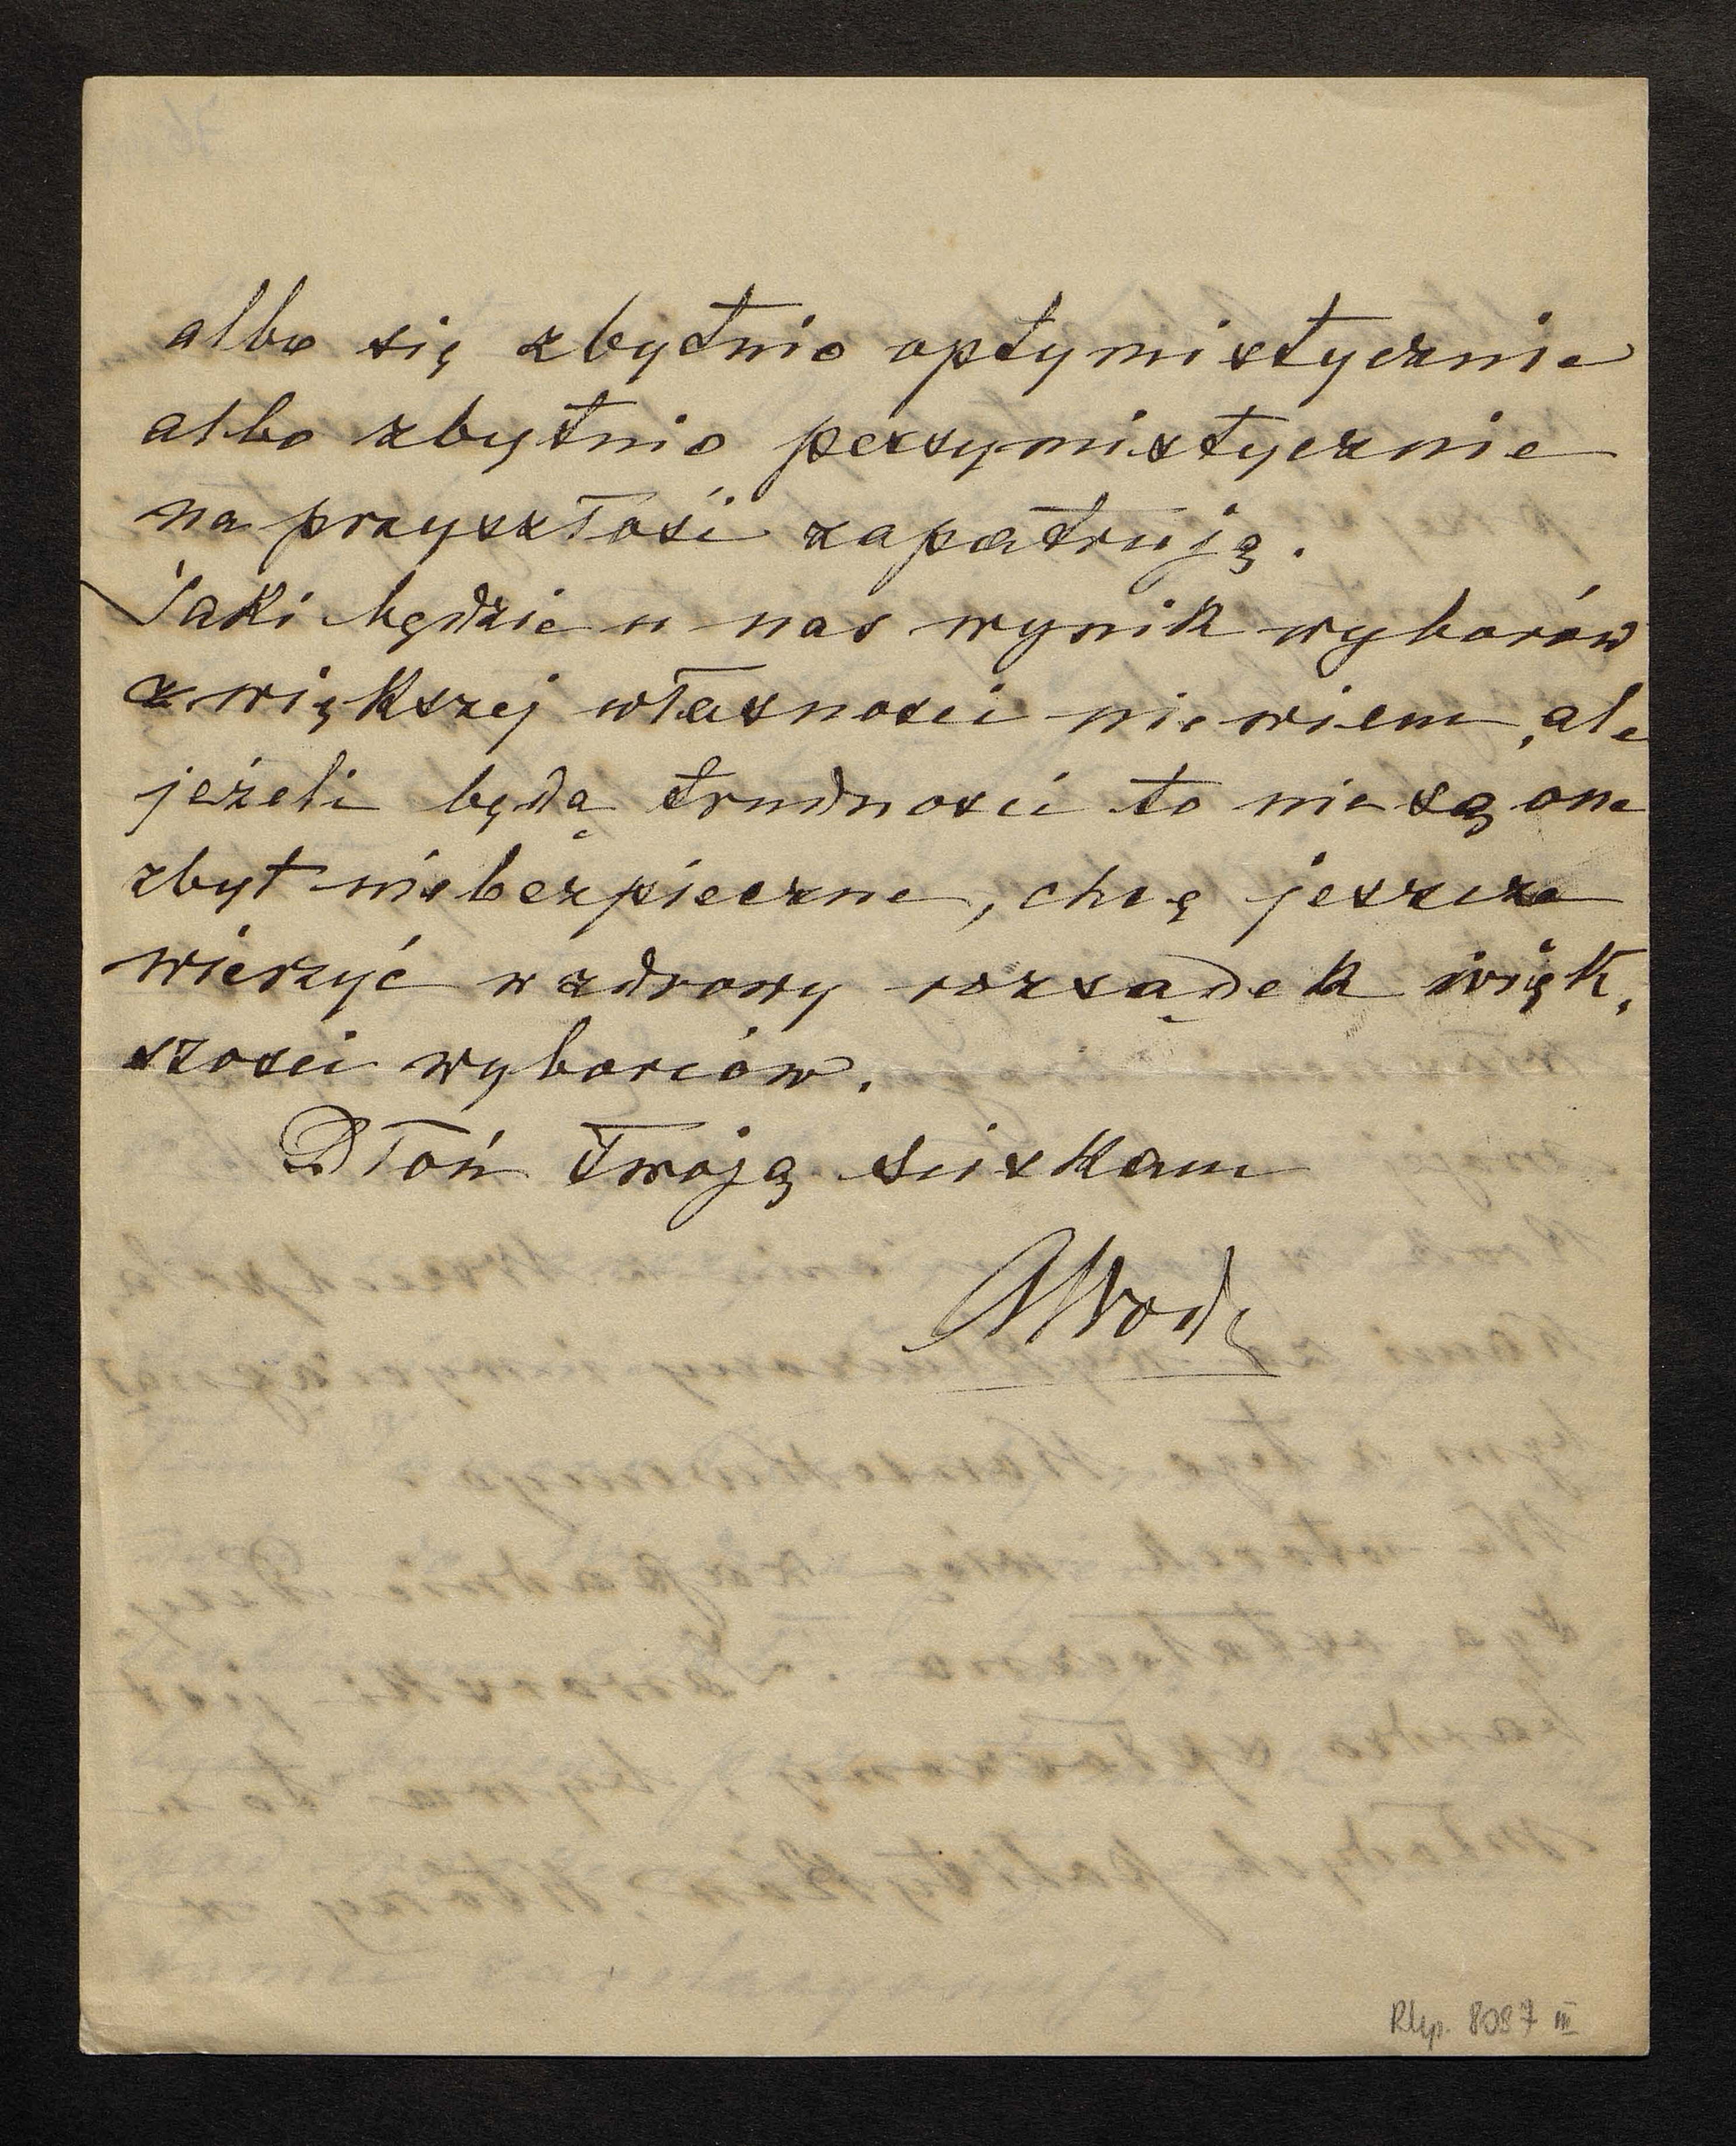 albo się zbytnio optymistycznie
albo zbytnio pessymistycznie
na przyszłość zapatrują.
Jaki będzie u nas wynik wyborów
z większej własności nie wiem, ale
jeżeli będą trudności to nie są one
zbyt niebezpieczne, chcę jeszcze
wierzyć w zdrowy rozsądek więk,
szości wyborców.
Dłoń twoją ściskam
Rkp. 8087 III